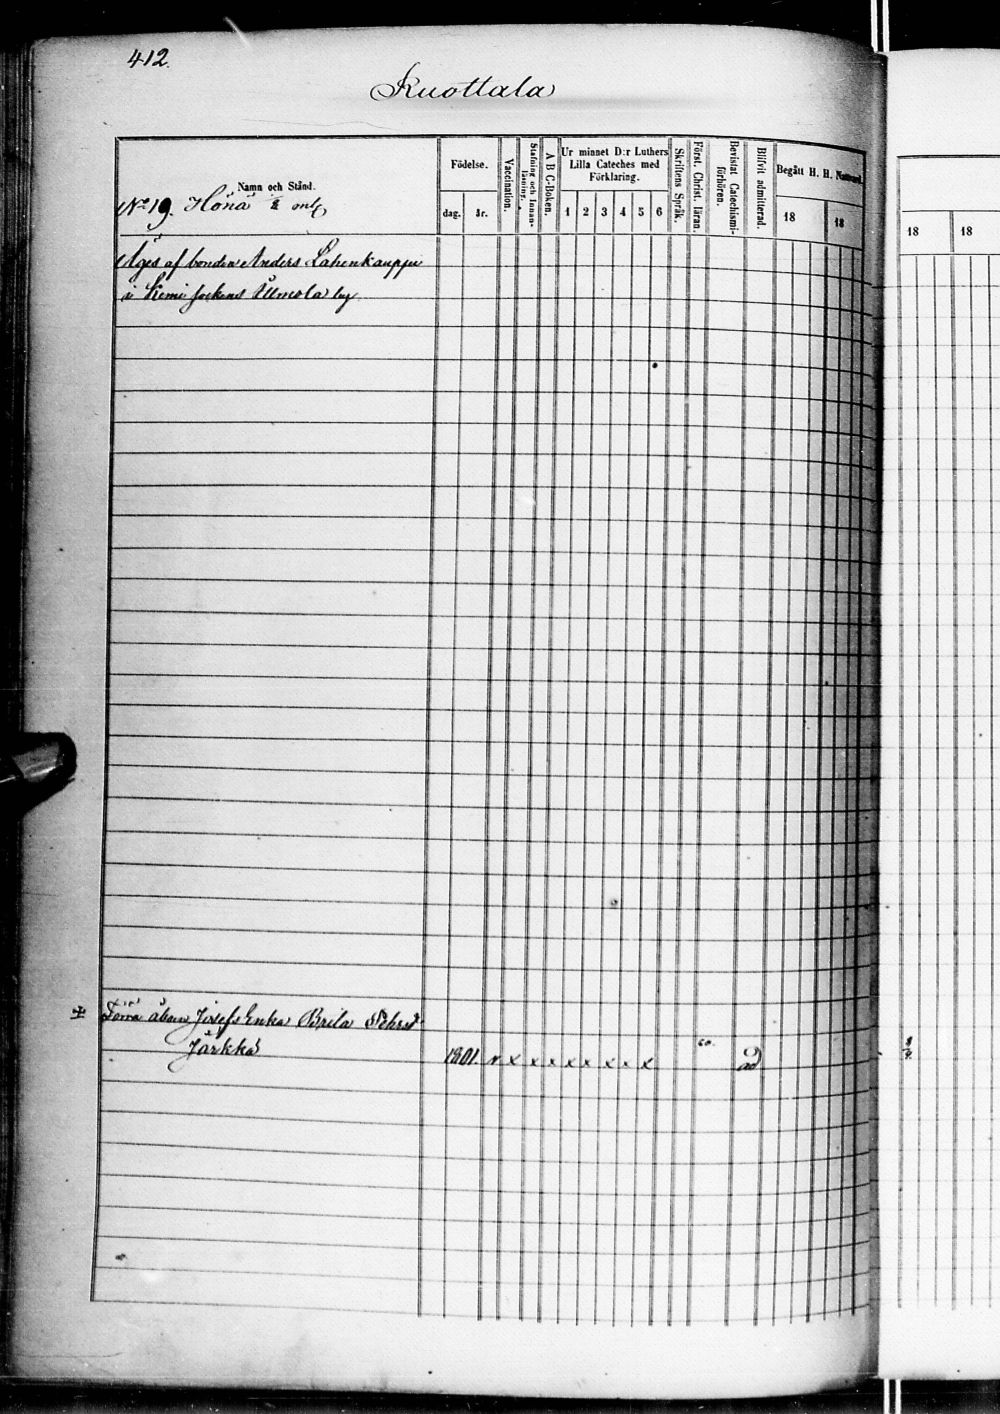 412.
Kuottala
Namn och Stånd.
Födelse.
dag.
år.
Vaccination.
Stafning och Innan-
läsning.
A B C-Boken.
Ur minnet D:r Luthers
Lilla Cateches med
Förklaring.
1 2 3 4 5 6
Skriftens Språk.
Först. Christ. läran.
Bevistat Catechismi-
förhören.
Blifvit admitterad.
Begått H. H. Nattvard.
18 18
18 18
No 19. Hönä
Äges af bonden Anders Lahenkauppi
i Kemi sockens by
Förra åboen Josefs Enka Brita Pehrsd.
Järkkä
1801. v x x x x x x x x
60.
ad